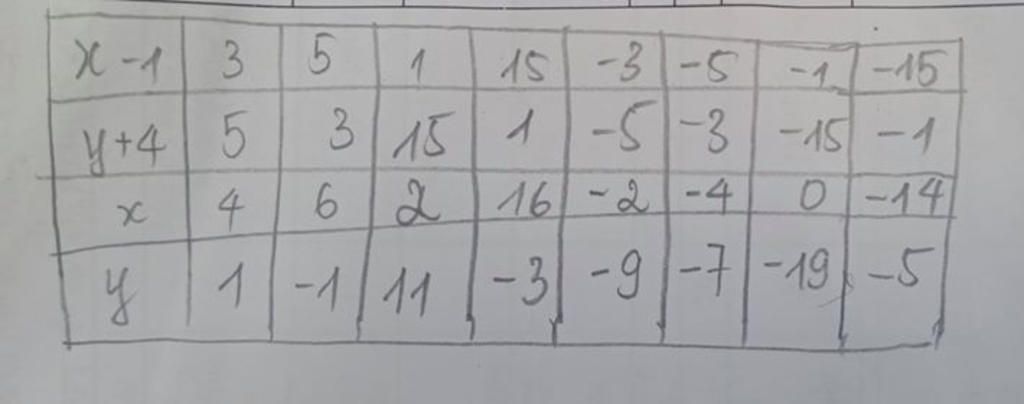 x -1 3 5 1 15 -3 -5 -1 -15
y+4 5 3 15 1 -5 -3 -15 -1
x 4 6 2 16 -2 -4 0 -14
y 1 -1 11 -3 -9 -7 -19 -5